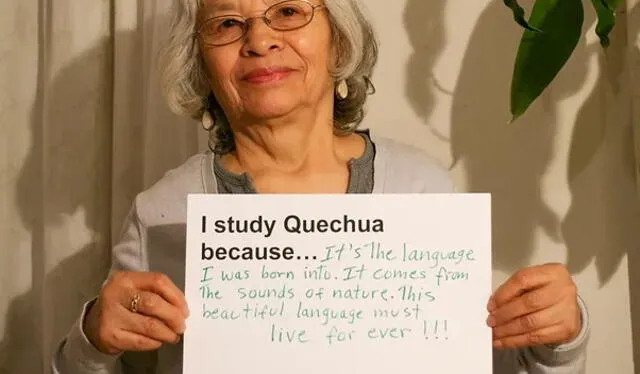 I study Quechua
because... It's The language
I was born into. It comes from
The sounds of nature. This
beautiful language must
live for ever !!!